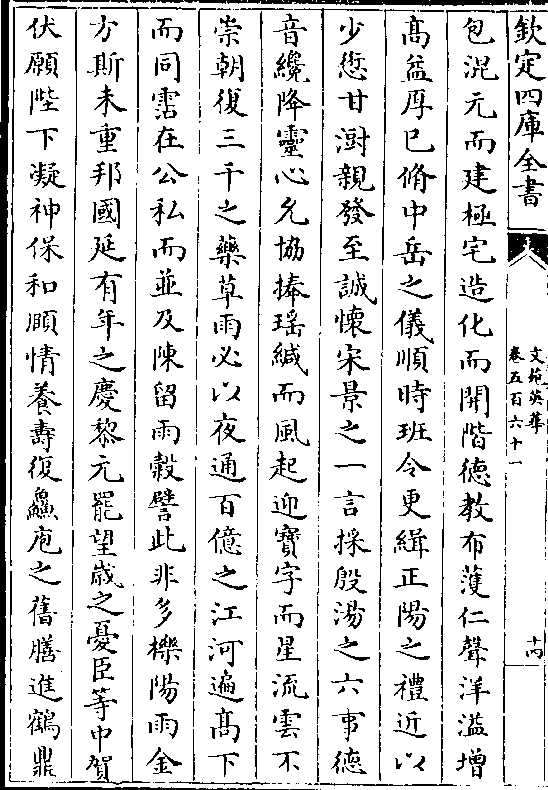 欽定四庫全書
文苑英華
卷五百六十一
十四
包混元而建極宅造化而開階德教布濩仁聲洋溢增
髙益厚已脩中岳之儀順時班令更緝正陽之禮近以
少愆甘澍親發至誠懷宋景之一言採殷湯之六事德
音纔降靈心允協捧瑶緘而風起迎寶字而星流雲不
崇朝復三千之藥草雨必以夜通百億之江河遍髙下
而同霑在公私而並及陳留雨糓譬此非多櫟陽雨金
方斯未重邦國延有年之慶黎元罷望嵗之憂臣等中賀
伏願陛下凝神保和頤情養壽復鱻庖之舊膳進鶴鼎